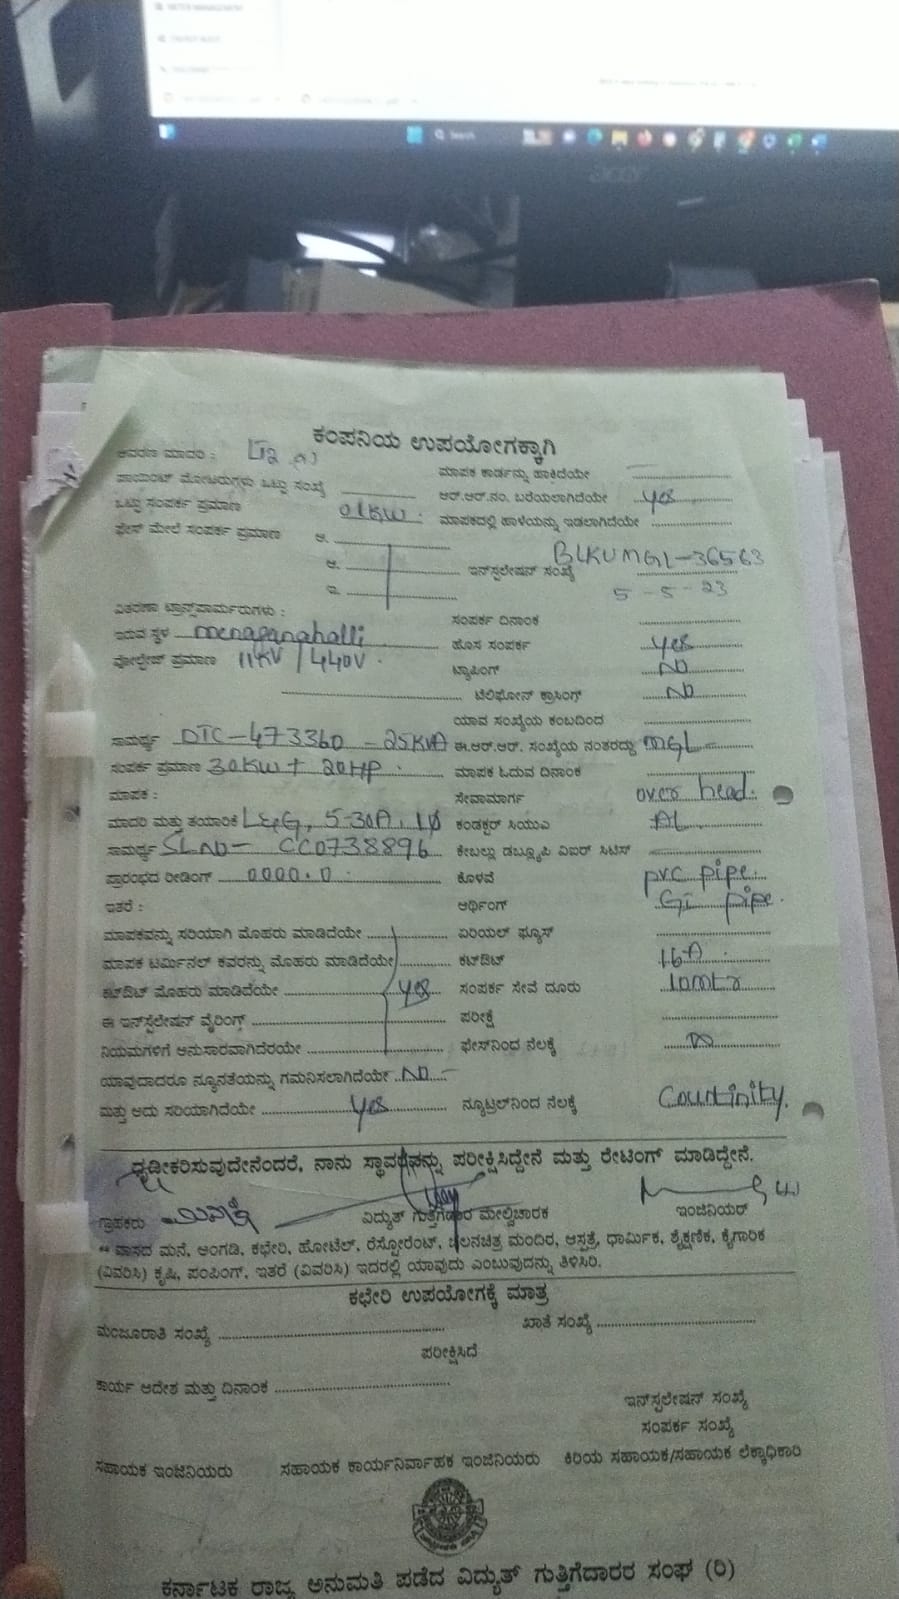 Search
acer
ಕಂಪನಿಯ ಉಪಯೋಗಕ್ಕಾಗಿ
ಆವರಣ ಮಾದರಿ : LT2
ಮಾಪಕ ಕಾರ್ಡನ್ನು ಹಾಕಿದೆಯೇ
ಪಾಯಿಂಟ್ ಮೋಟರುಗಳು ಒಟ್ಟು ಸಂಖ್ಯೆ
ಆರ್.ಆರ್.ನಂ. ಬರೆಯಲಾಗಿದೆಯೇ yes
ಒಟ್ಟು ಸಂಪರ್ಕ ಪ್ರಮಾಣ 01KW
ಮಾಪಕದಲ್ಲಿ ಹಾಳೆಯನ್ನು ಇಡಲಾಗಿದೆಯೇ
ಫೇಸ್ ಮೇಲೆ ಸಂಪರ್ಕ ಪ್ರಮಾಣ ಅ.
ಆ.
ಇ.
ಇನ್‌ಸ್ಟಲೇಷನ್ ಸಂಖ್ಯೆ BLKUMGL-36563
5-5-23
ವಿತರಣಾ ಟ್ರಾನ್ಸ್‌ಫಾರ್ಮರುಗಳು :
ಸಂಪರ್ಕ ದಿನಾಂಕ
ಇರುವ ಸ್ಥಳ menaganahalli
ಹೊಸ ಸಂಪರ್ಕ yes
ವೋಲ್ಟೇಜ್ ಪ್ರಮಾಣ 11KV / 440V
ಟ್ಯಾಪಿಂಗ್ NO
ಟೆಲಿಫೋನ್ ಕ್ರಾಸಿಂಗ್ NO
ಯಾವ ಸಂಖ್ಯೆಯ ಕಂಬದಿಂದ
ಸಾಮರ್ಥ್ಯ DTC-473360 - 25KVA
ಈ.ಆರ್.ಆರ್. ಸಂಖ್ಯೆಯ ನಂತರದ್ದು MGL
ಸಂಪರ್ಕ ಪ್ರಮಾಣ 30KW + 20HP
ಮಾಪಕ ಓದುವ ದಿನಾಂಕ
ಮಾಪಕ :
ಸೇವಾಮಾರ್ಗ over head.
ಮಾದರಿ ಮತ್ತು ತಯಾರಿಕೆ L&G, 5-30A, 1Ø
ಕಂಡಕ್ಟರ್ ಸಿಯುಎ AL
ಸಾಮರ್ಥ್ಯ SL.NO- CC0738896
ಕೇಬಲ್ಲು ಡಬ್ಲ್ಯೂಪಿ ವಿಐರ್ ಸಿಟಿಸ್
ಪ್ರಾರಂಭದ ರೀಡಿಂಗ್ 0000.0
ಕೊಳವೆ pvc pipe.
ಇತರೆ :
ಆರ್ಥಿಂಗ್ Gi pipe.
ಮಾಪಕವನ್ನು ಸರಿಯಾಗಿ ಮೊಹರು ಮಾಡಿದೆಯೇ
ಏರಿಯಲ್ ಫ್ಯೂಸ್
ಮಾಪಕ ಟರ್ಮಿನಲ್ ಕವರನ್ನು ಮೊಹರು ಮಾಡಿದೆಯೇ
ಕಟ್‌ಔಟ್ 16A
ಕಟ್‌ಔಟ್ ಮೊಹರು ಮಾಡಿದೆಯೇ yes
ಸಂಪರ್ಕ ಸೇವೆ ದೂರು 10mtr
ಈ ಇನ್‌ಸ್ಟಲೇಷನ್ ವೈರಿಂಗ್
ಪರೀಕ್ಷೆ
ನಿಯಮಗಳಿಗೆ ಅನುಸಾರವಾಗಿದೆರಯೇ
ಫೇಸ್‌ನಿಂದ ನೆಲಕ್ಕೆ
ಯಾವುದಾದರೂ ನ್ಯೂನತೆಯನ್ನು ಗಮನಿಸಲಾಗಿದೆಯೇ NO
ಮತ್ತು ಅದು ಸರಿಯಾಗಿದೆಯೇ yes
ನ್ಯೂಟ್ರಲ್‌ನಿಂದ ನೆಲಕ್ಕೆ Countinity.
ಧೃಡೀಕರಿಸುವುದೇನೆಂದರೆ, ನಾನು ಸ್ಥಾವರವನ್ನು ಪರೀಕ್ಷಿಸಿದ್ದೇನೆ ಮತ್ತು ರೇಟಿಂಗ್ ಮಾಡಿದ್ದೇನೆ.
ಗ್ರಾಹಕರು
ವಿದ್ಯುತ್ ಗುತ್ತಿಗೆದಾರ ಮೇಲ್ವಿಚಾರಕ
ಇಂಜಿನಿಯರ್
" ವಾಸದ ಮನೆ, ಅಂಗಡಿ, ಕಛೇರಿ, ಹೋಟೆಲ್, ರೆಸ್ಟೋರೆಂಟ್, ಚಲನಚಿತ್ರ ಮಂದಿರ, ಆಸ್ಪತ್ರೆ, ಧಾರ್ಮಿಕ, ಶೈಕ್ಷಣಿಕ, ಕೈಗಾರಿಕ
(ವಿವರಿಸಿ) ಕೃಷಿ, ಪಂಪಿಂಗ್, ಇತರೆ (ವಿವರಿಸಿ) ಇದರಲ್ಲಿ ಯಾವುದು ಎಂಬುವುದನ್ನು ತಿಳಿಸಿರಿ.
ಕಛೇರಿ ಉಪಯೋಗಕ್ಕೆ ಮಾತ್ರ
ಮಂಜೂರಾತಿ ಸಂಖ್ಯೆ
ಖಾತೆ ಸಂಖ್ಯೆ
ಪರೀಕ್ಷಿಸಿದೆ
ಕಾರ್ಯ ಆದೇಶ ಮತ್ತು ದಿನಾಂಕ
ಇನ್‌ಸ್ಟಲೇಷನ್ ಸಂಖ್ಯೆ
ಸಂಪರ್ಕ ಸಂಖ್ಯೆ
ಸಹಾಯಕ ಇಂಜಿನಿಯರು ಸಹಾಯಕ ಕಾರ್ಯನಿರ್ವಾಹಕ ಇಂಜಿನಿಯರು ಕಿರಿಯ ಸಹಾಯಕ/ಸಹಾಯಕ ಲೆಕ್ಕಾಧಿಕಾರಿ
ಕರ್ನಾಟಕ ರಾಜ್ಯ ಅನುಮತಿ ಪಡೆದ ವಿದ್ಯುತ್ ಗುತ್ತಿಗೆದಾರರ ಸಂಘ (ರಿ)